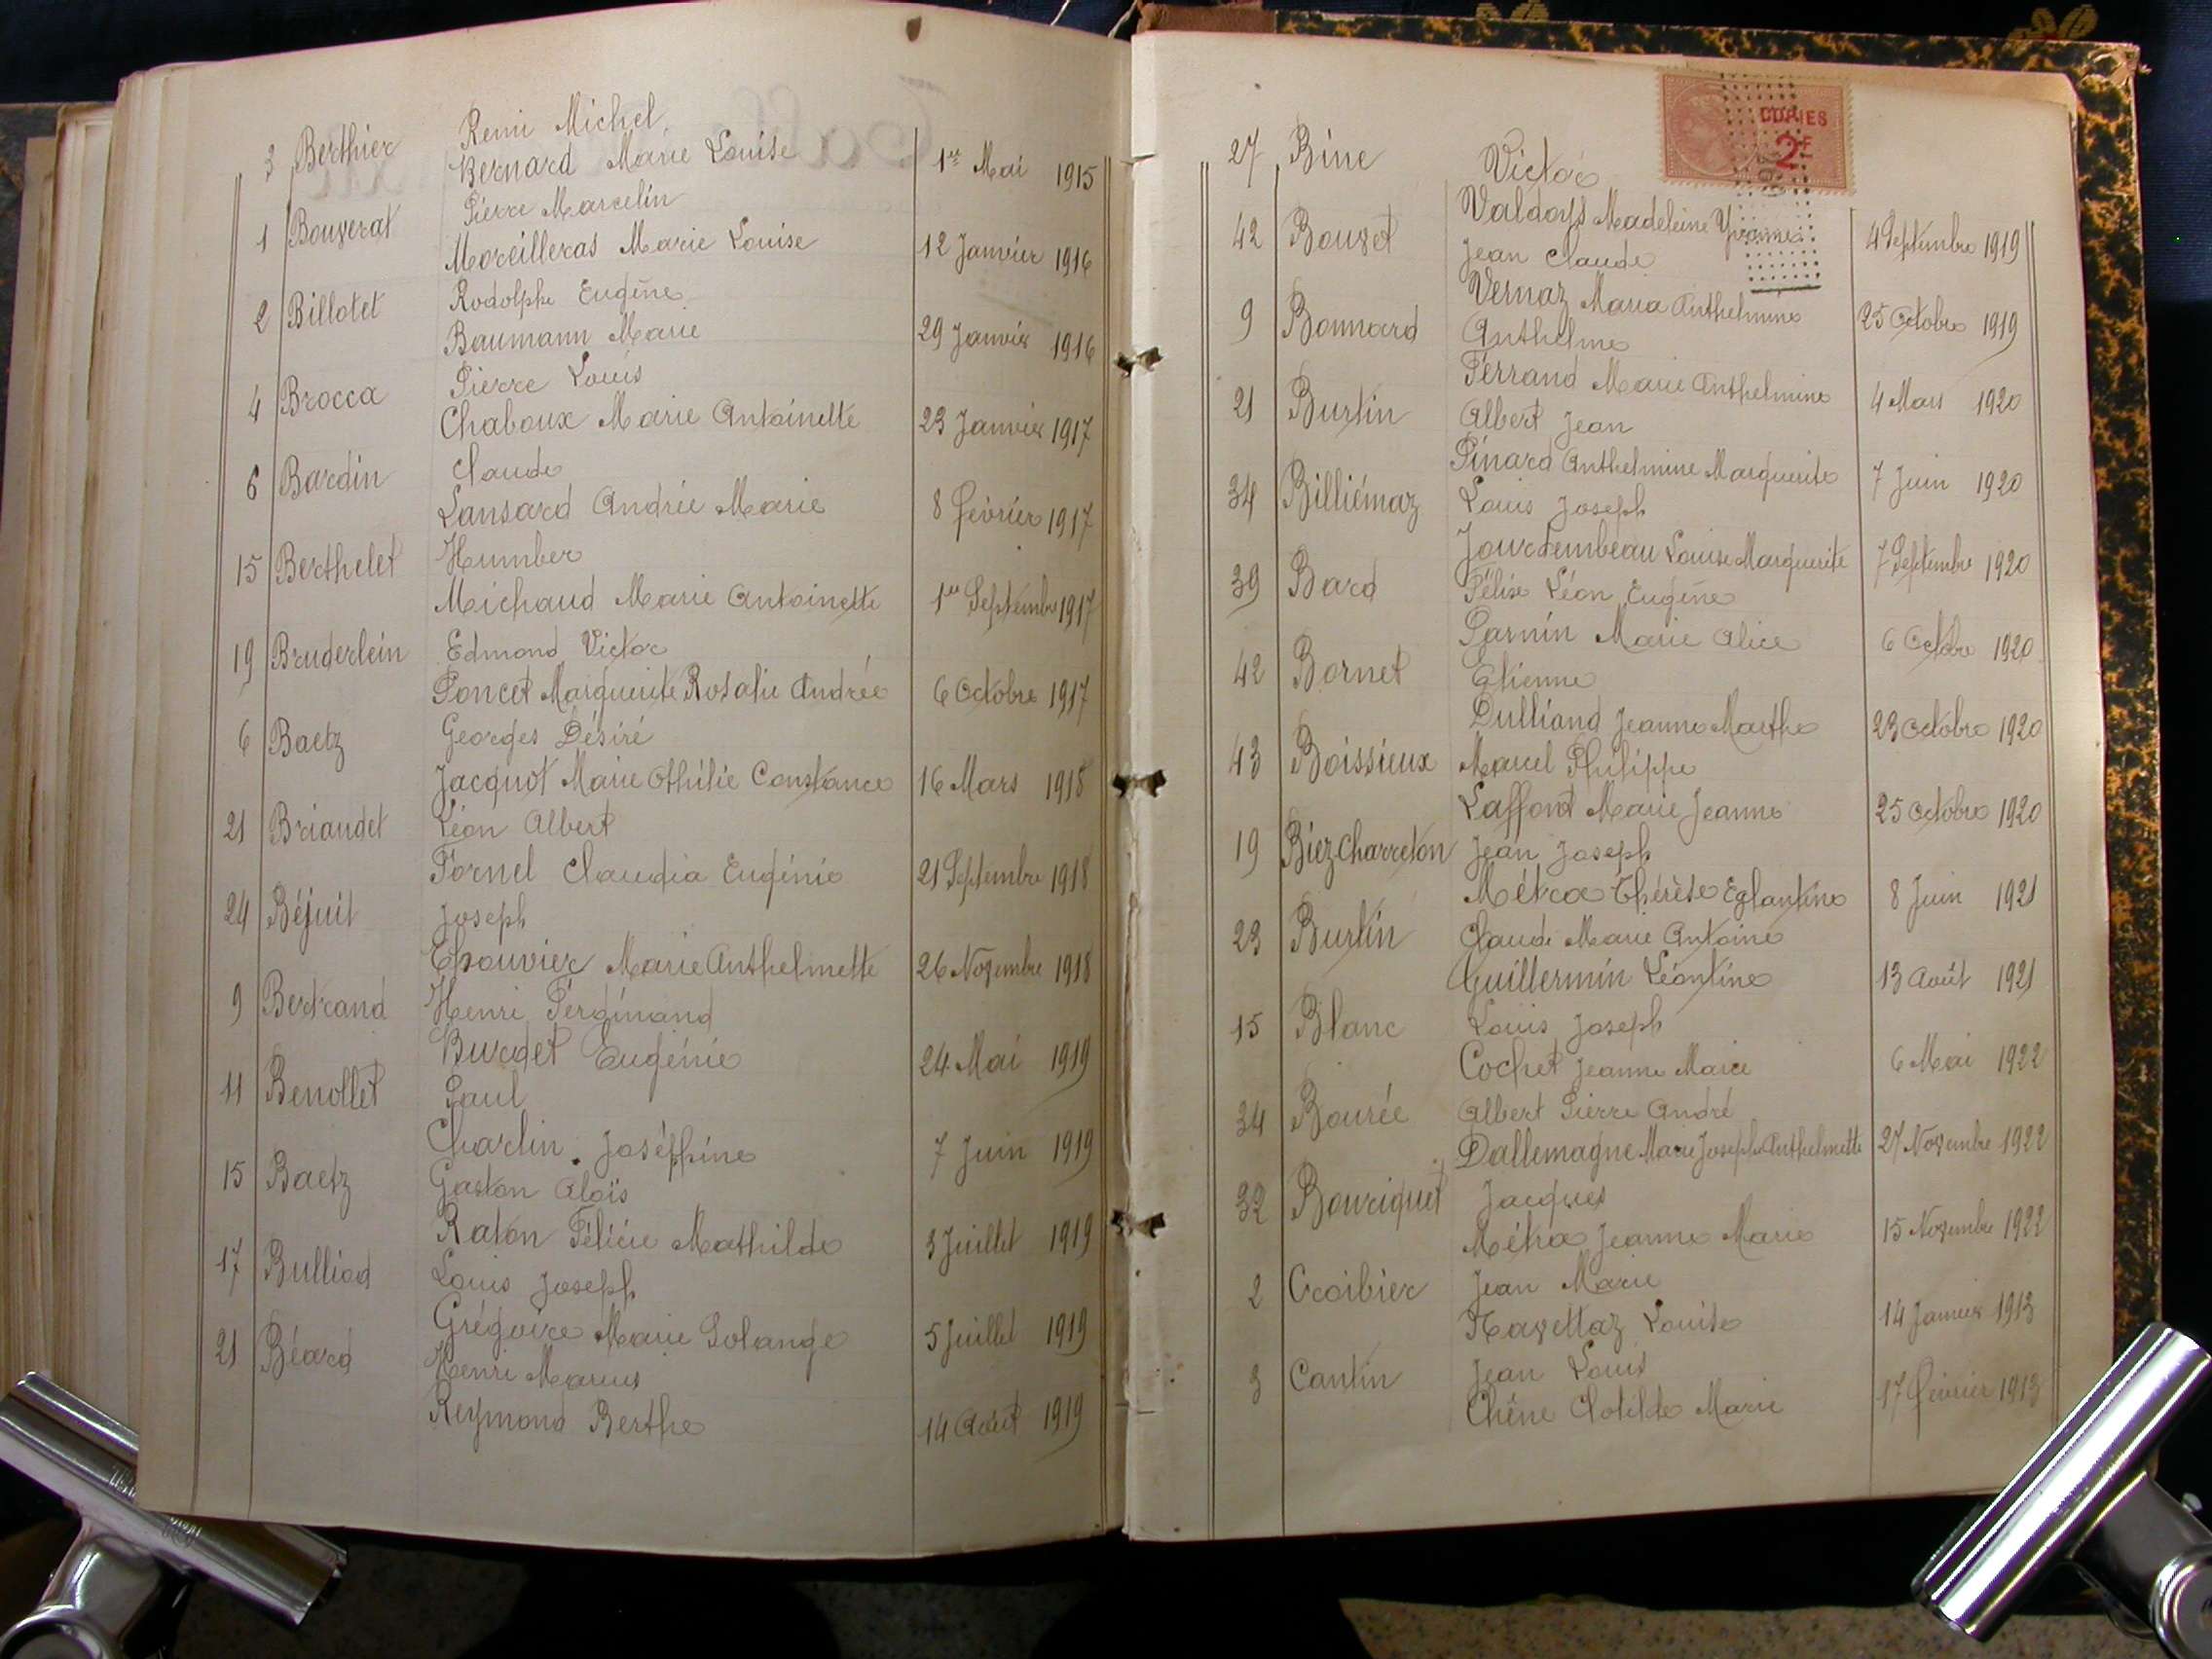 3 Berthier Remi Michel
Bernard Marie Louise 1er Mai 1915
1 Bouverat Pierre Marcelin
Moreilleras Marie Louise 12 Janvier 1916
2 Billotet Rodolphe Eugène
Baumann Marie 29 Janvier 1916
4 Brocca Pierre Louis
Chaboux Marie Antoinette 23 Janvier 1917
6 Bardin Claude
Lansard Andrée Marie 8 février 1917
15 Berthelet Humber
Michaud Marie Antoinette 1er Septembre 1917
19 Bruderlein Edmond Victor
Poncet Marguerite Rosalie Andrée 6 Octobre 1917
6 Baetz Georges Désiré
Jacquot Marie Othilie Constance 16 Mars 1918
21 Briaudet Léon Albert
Fornel Claudia Eugénie 21 Septembre 1918
24 Béjuit Joseph
Thouvier Marie Anthelmette 26 Novembre 1918
9 Bertrand Henri Ferdinand
Burdet Eugénie 24 Mai 1919
11 Benollet Paul
Charlin Joséphine 7 Juin 1919
15 Baetz Gaston Aloïs
Raton Félicie Mathilde 3 Juillet 1919
17 Bulliod Louis Joseph
Grégoire Marie Solange 5 Juillet 1919
21 Béard Henri Marius
Reymond Berthe 14 Août 1919
COPIES
2F
27 Bine Victor
Madeleine Yvonne 4 Septembre 1919
42 Bouvet Jean Claude
Vernaz Maria Anthelmine 25 Octobre 1919
9 Bonnard Anthelme
Ferrand Marie Anthelmine 4 Mars 1920
21 Burtin Albert Jean
Pinard Anthelmine Marguerite 7 Juin 1920
34 Billiémaz Louis Joseph
Jourdembeau Louise Marguerite 7 Septembre 1920
39 Bard Félix Léon Eugène
Garnin Marie Alice 6 Octobre 1920
42 Bornet Etienne
Dulliand Jeanne Marthe 23 Octobre 1920
43 Boissieux Marcel Philippe
Laffont Marie Jeanne 25 Octobre 1920
19 Biez Charreton Jean Joseph
Métra Thérèse Eglantine 8 Juin 1921
23 Burtin Claude Marie Antoine
Guillermin Léontine 13 Août 1921
15 Blanc Louis Joseph
Cochet Jeanne Marie 6 Mai 1922
34 Bourée Albert Pierre André
Dallemagne Marie Josephe Anthelmette 27 Novembre 1922
32 Bouriquet Jacques
Métra Jeanne Marie 15 Novembre 1922
2 Croibier Jean Marie
Navettaz Louise 14 Janvier 1913
3 Cantin Jean Louis
Chêne Clotilde Marie 17 février 1913